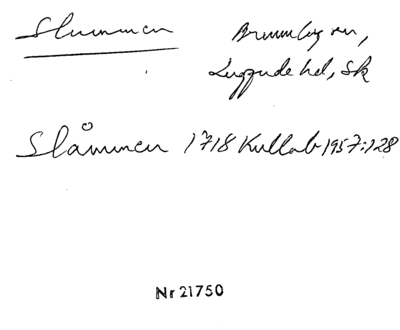 Slummen Brunnby sn,
Luggude hd, Sk
Slåmmen 1718 Kullab 1957:128
Nr 21750